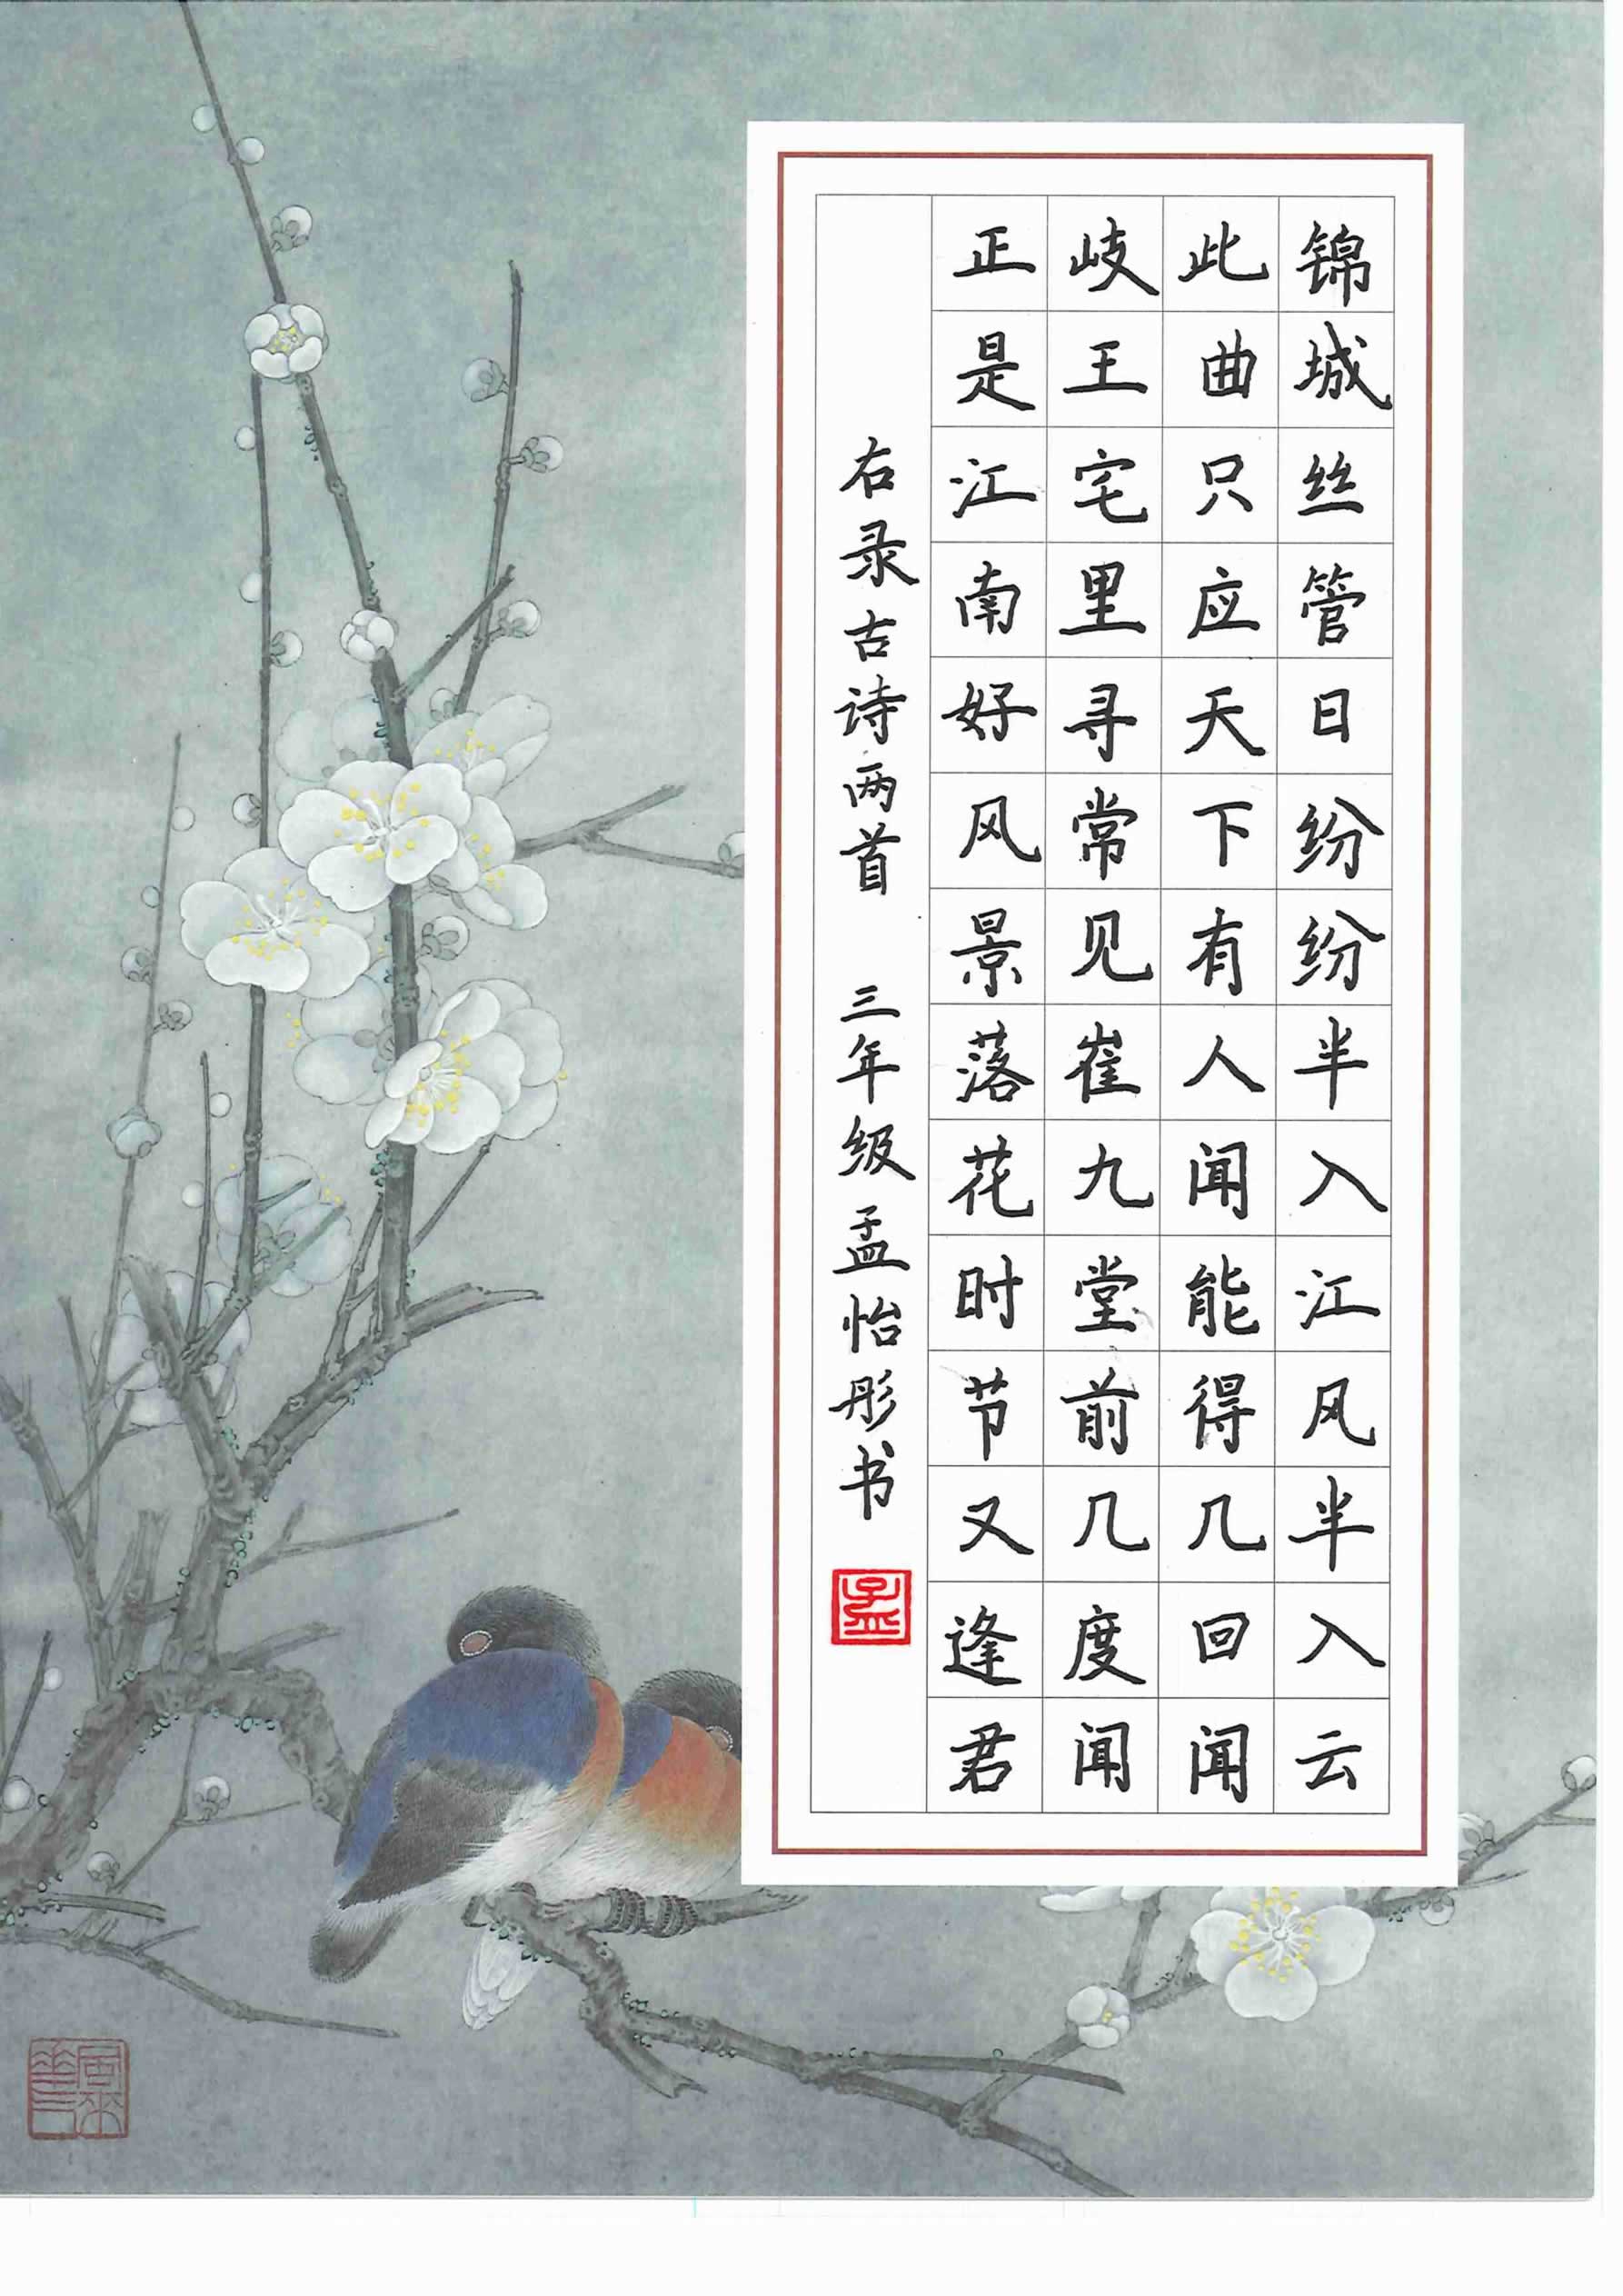 锦城丝管日纷纷半入江风半入云
此曲只应天下有人闻能得几回闻
岐王宅里寻常见崔九堂前几度闻
正是江南好风景落花时节又逢君
右录古诗两首 三年级孟怡彤书
孟